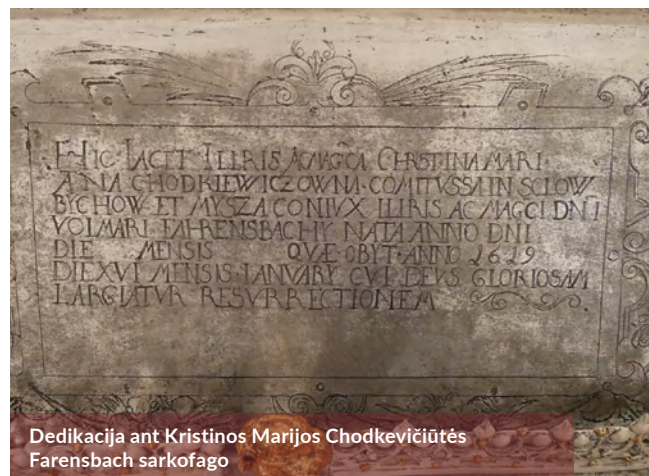 HIC IACET ILLRIS AC MAGCA CHRSTINA MARI·
ANA CHODKIEWICZOWNA·COMITVSSA IN SCLOW
BYCHOW ET MYSZA CONIVX ILLRIS AC MAGCI DNI
VOLMARI FAHRENSBACHY NATA ANNO DNI
DIE MENSIS QVÆ OBYT·ANNO 1619
DIE XVI MENSIS IANVARY CVI DEVS GLORIOSAM
LARGIATVR RESVRRECTIONEM
Dedikacija ant Kristinos Marijos Chodkevičiūtės
Farensbach sarkofago